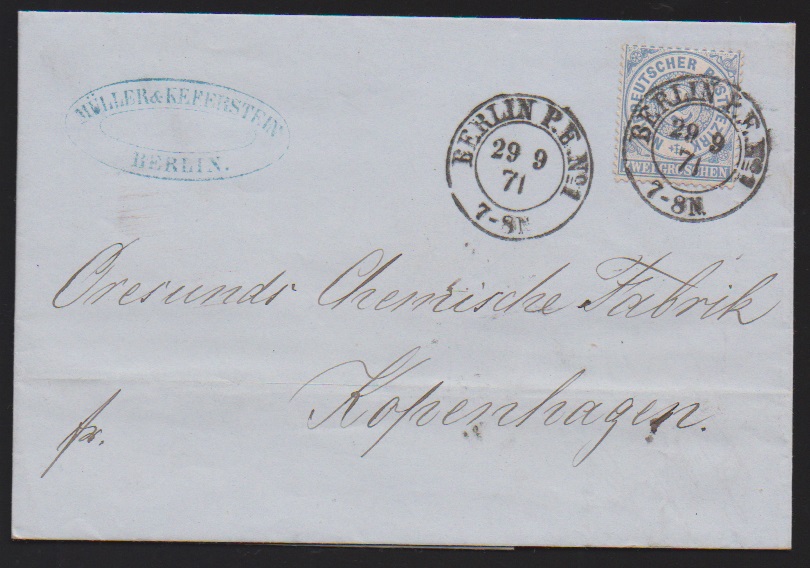 MÜLLER & KEFERSTEIN
BERLIN.
BERLIN P.E. No 1
29 9
71
7-8N
DEUTSCHER POSTBEZIRK
ZWEI GROSCHEN
BERLIN P.E. No 1
29 9
71
7-8N
Oresunds Chemische Fabrik
Kopenhagen.
fr.